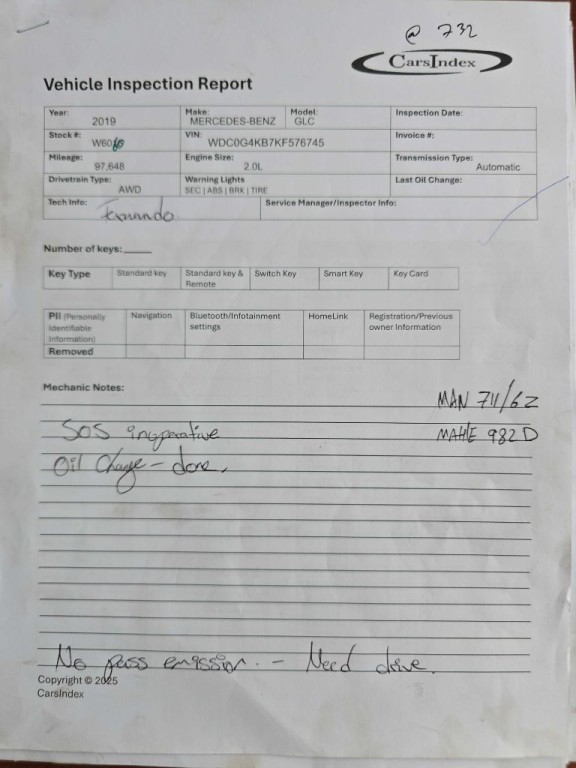 @ 732
CarsIndex
Vehicle Inspection Report
Year: 2019 Make: MERCEDES-BENZ Model: GLC Inspection Date:
Stock #: W60 VIN: WDC0G4KB7KF576745 Invoice #:
Mileage: 97,648 Engine Size: 2.0L Transmission Type: Automatic
Drivetrain Type: AWD Warning Lights SEC | ABS | BRK | TIRE Last Oil Change:
Tech Info: Fernando Service Manager/Inspector Info:
Number of keys:
Key Type Standard key Standard key & Remote Switch Key Smart Key Key Card
PII (Personally Identifiable Information) Removed Navigation Bluetooth/Infotainment settings HomeLink Registration/Previous owner Information
Mechanic Notes:
MAN 711/62
SOS inoperative MAHLE 982D
Oil Change - done.
No pass emission. - Need drive.
Copyright © 2025
CarsIndex